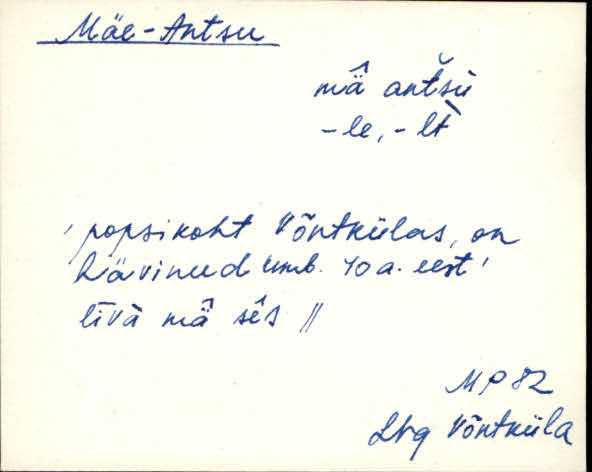 Mäe-Antsu
mä̂ antšu
-le, -lt̀
'popsikoht Võntkülas, on
hävinud umb. 40 a. eest'
līvà mä̂ sês //
MP 82
Võntküla